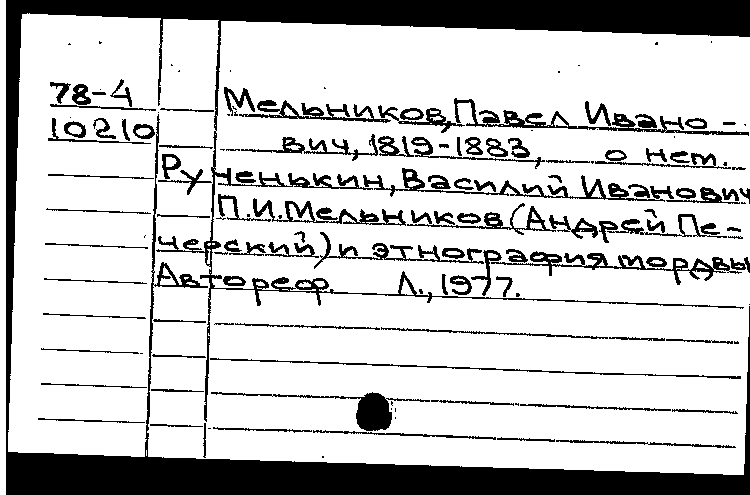 78-4
10210
Мельников, Павел Ивано-
вич, 1819-1883, о нем.
Рученькин, Василий Иванович
П.И. Мельников (Андрей Пе-
черский) и этнография мордвы
Автореф. Л., 1977.